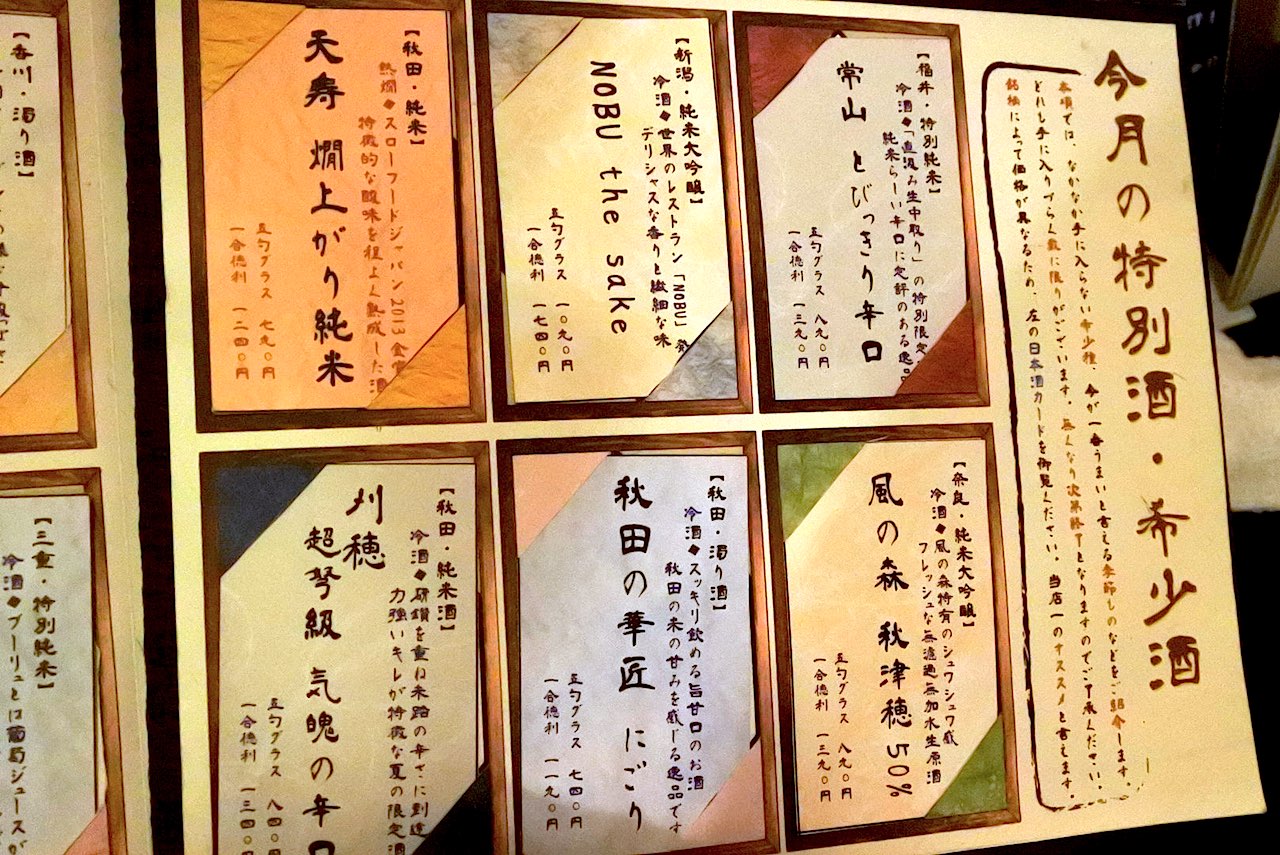 今月の特別酒・希少酒
本項では、なかなか手に入らない希少種、今が一番うまいと言える季節ものなどをご紹介します。
どれも手に入りづらく数に限りがございます。無くなり次第終了となりますのでご了承ください。
銘柄によって価格が異なるため、左の日本酒カードを御覧ください。当店一のオススメと言えます。
【福井・特別純米】
冷酒◆「直汲み生中取り」の特別限定
純米らしい辛口に定評のある逸品
常山 とびっきり辛口
五勺グラス 八九〇円
一合徳利 一三九〇円
【新潟・純米大吟醸】
冷酒◆世界のレストラン「NOBU」発
デリシャスな香りと繊細な味
NOBU the sake
五勺グラス 一〇九〇円
一合徳利 一七四〇円
【秋田・純米】
熱燗◆スローフードジャパン2013金賞
特徴的な酸味を程よく熟成した酒
天寿 燗上がり純米
五勺グラス 七九〇円
一合徳利 一二四〇円
【奈良・純米大吟醸】
冷酒◆風の森特有のシュワシュワ感
フレッシュな無濾過無加水生原酒
風の森 秋津穂50%
五勺グラス 八九〇円
一合徳利 一三九〇円
【秋田・濁り酒】
冷酒◆スッキリ飲める旨甘口のお酒
秋田の米の甘みを感じる逸品です
秋田の華匠 にごり
五勺グラス 七四〇円
一合徳利 一一九〇円
【秋田・純米酒】
冷酒◆研鑽を重ね未踏の辛さに到達
力強いキレが特徴な夏の限定酒
刈穂
超弩級 気魄の辛口
五勺グラス 八四〇円
一合徳利 一三四〇円
【香川・濁り酒】
【三重・特別純米】
冷酒◆ブーリュとは葡萄ジュースが